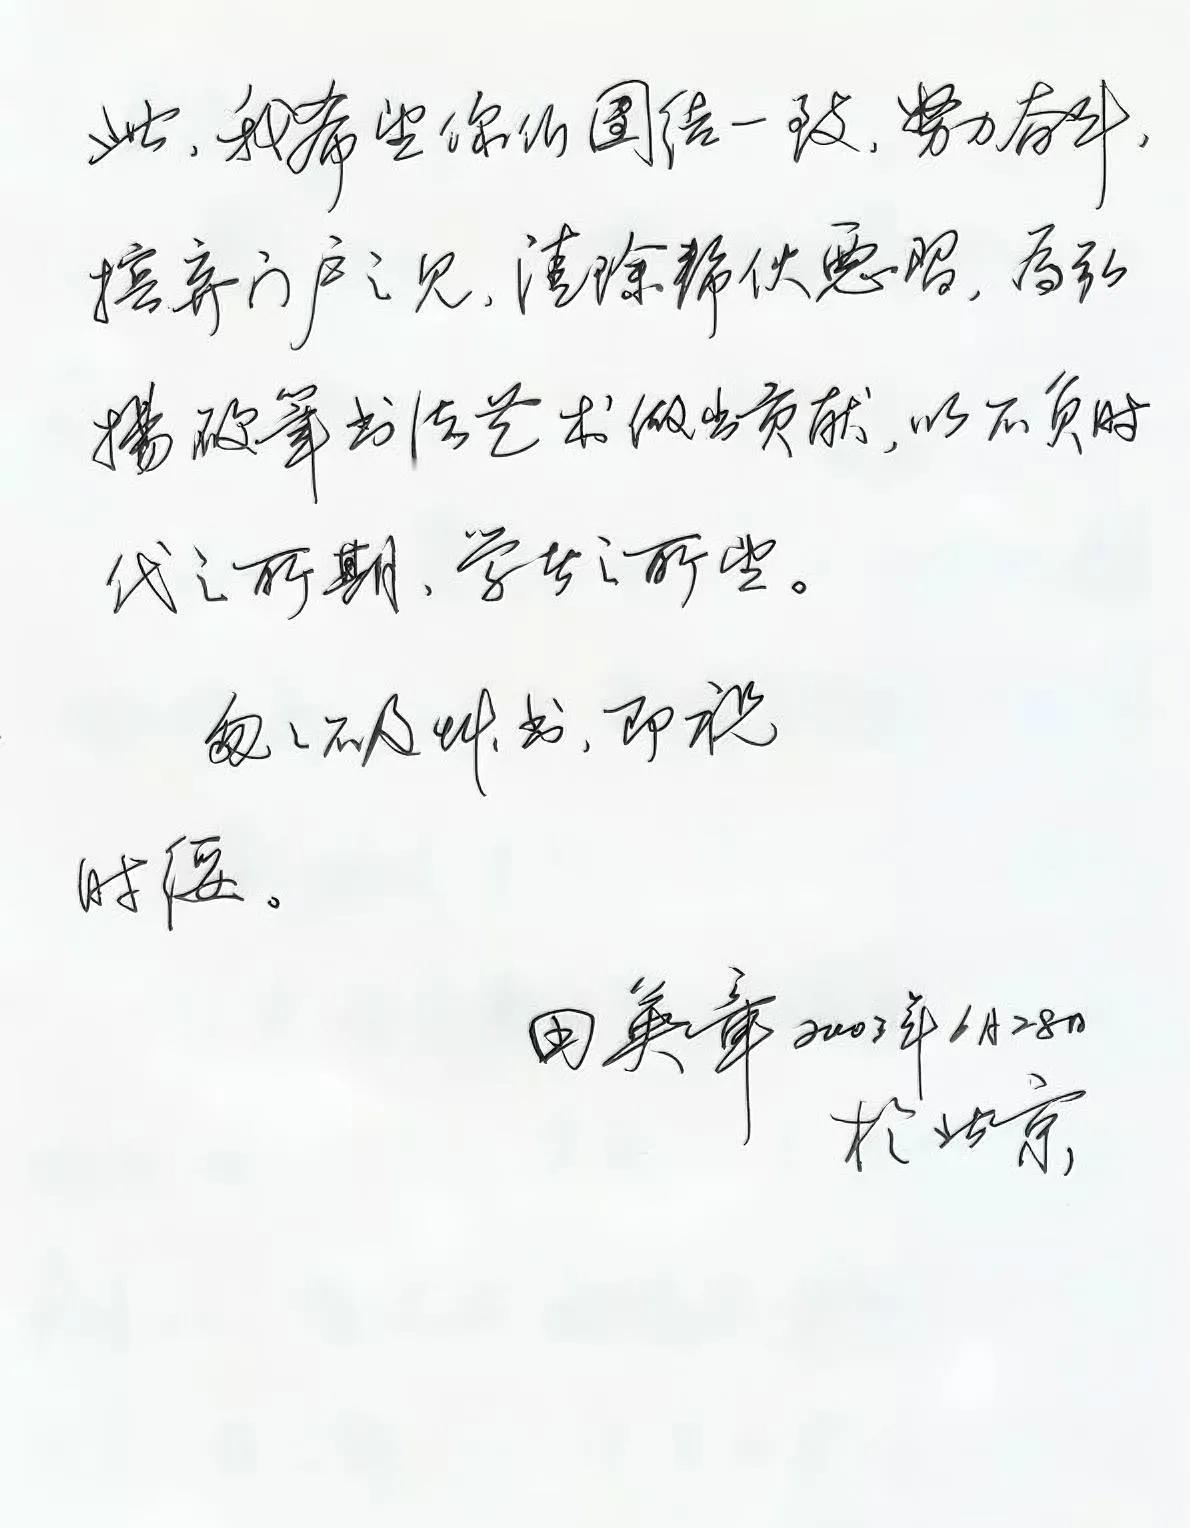 此，我希望你们团结一致，努力奋斗，
摈弃门户之见，清除帮伙恶习，为弘
扬硬笔书法艺术做出贡献，以不负时
代之所期，学者之所望。
匆匆不及草书，即祝
时绥。
田英章2003年6月28日
于北京